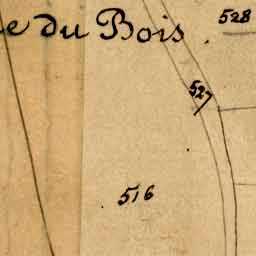 528
e du Bois
527
516